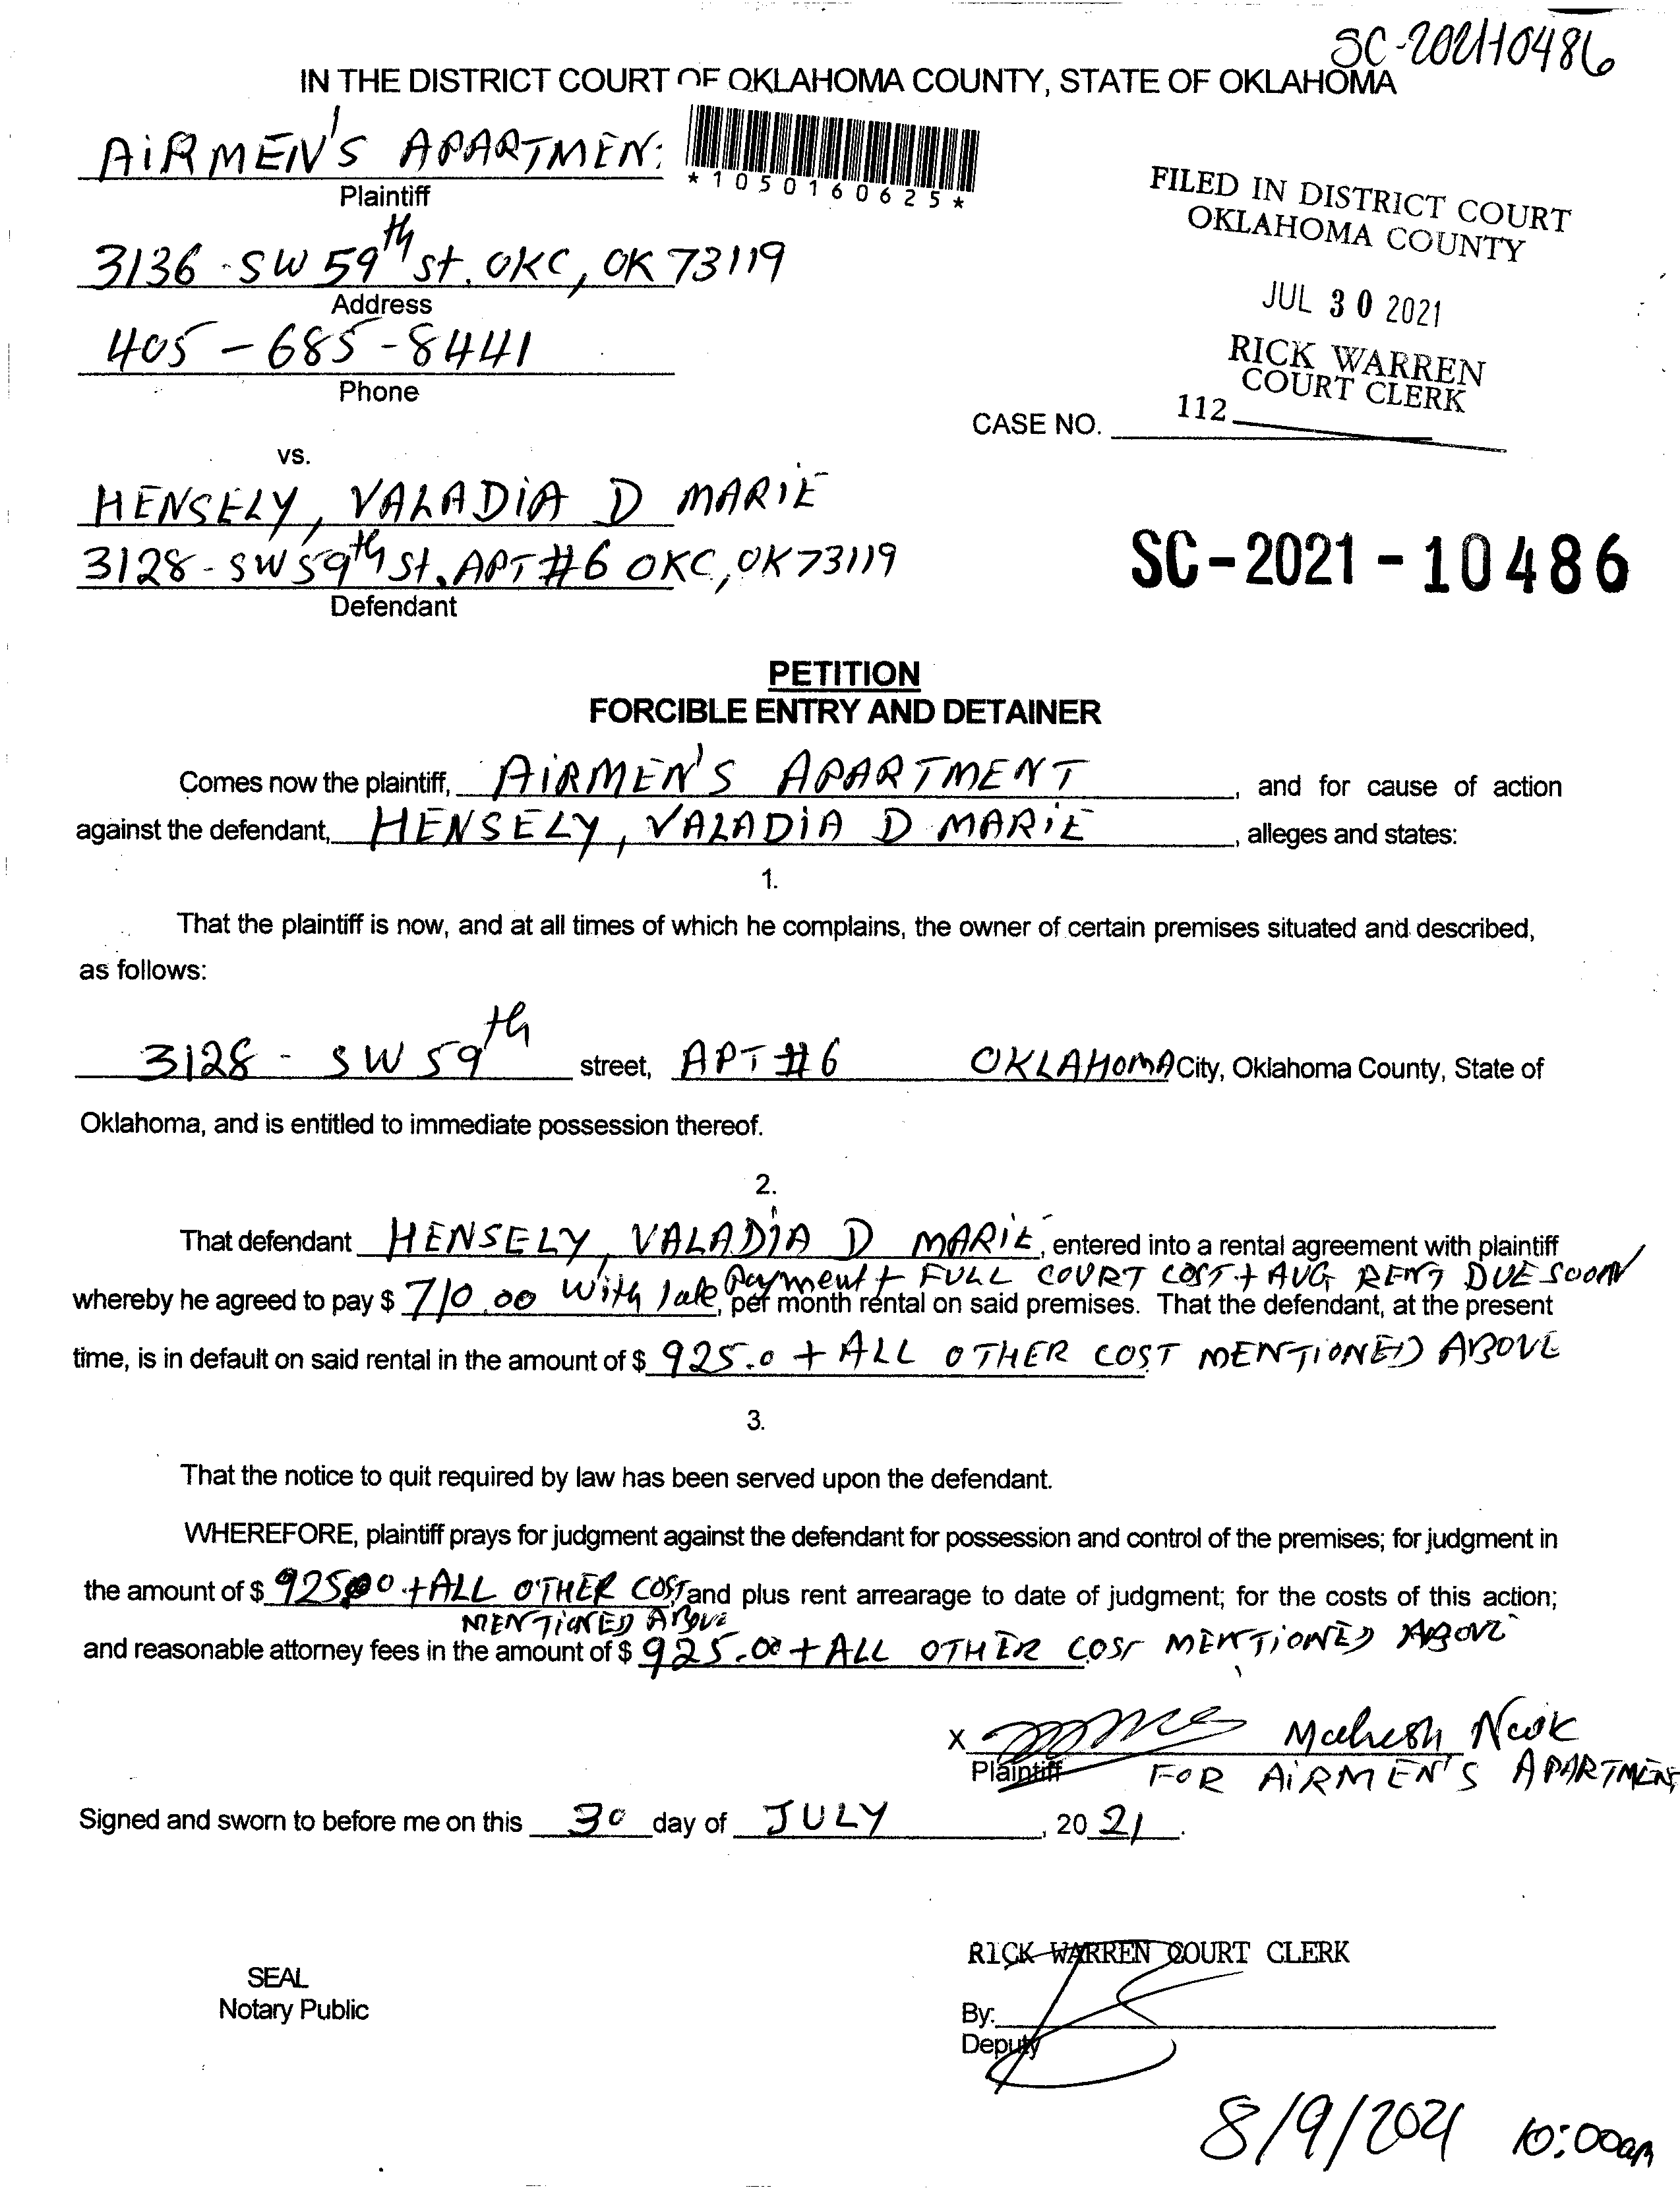 SC-2021-10486
IN THE DISTRICT COURT OF OKLAHOMA COUNTY, STATE OF OKLAHOMA
AIRMEN'S APARTMEN
*1050160625*
Plaintiff
FILED IN DISTRICT COURT
OKLAHOMA COUNTY
3136-SW 59th st. OKC, OK 73119
Address
JUL 30 2021
405-685-8441
Phone
RICK WARREN
COURT CLERK
CASE NO. 112
vs.
HENSELY, VALADIA D MARIE
3128-SW 59th St. APT #6 OKC, OK 73119
Defendant
SC-2021-10486
PETITION
FORCIBLE ENTRY AND DETAINER
Comes now the plaintiff, AIRMEN'S APARTMENT, and for cause of action
against the defendant, HENSELY, VALADIA D MARIE, alleges and states:
1.
That the plaintiff is now, and at all times of which he complains, the owner of certain premises situated and described,
as follows:
3128 - SW 59th street, APT #6 OKLAHOMA City, Oklahoma County, State of
Oklahoma, and is entitled to immediate possession thereof.
2.
That defendant HENSELY, VALADIA D MARIE, entered into a rental agreement with plaintiff
whereby he agreed to pay $ 710.00 With late Payment + FULL COURT COST + AUG RENT DUE SOON, per month rental on said premises. That the defendant, at the present
time, is in default on said rental in the amount of $ 925.0 + ALL OTHER COST MENTIONED ABOVE
3.
That the notice to quit required by law has been served upon the defendant.
WHEREFORE, plaintiff prays for judgment against the defendant for possession and control of the premises; for judgment in
the amount of $ 925.00 + ALL OTHER COST and plus rent arrearage to date of judgment; for the costs of this action;
MENTIONED ABOVE
and reasonable attorney fees in the amount of $ 925.00 + ALL OTHER COST MENTIONED ABOVE
X Mahesh Naik
Plaintiff FOR AIRMEN'S APARTMENT
Signed and sworn to before me on this 30 day of JULY, 20 21.
RICK WARREN COURT CLERK
SEAL
Notary Public
By:
Deputy
8/9/2021 10:00am